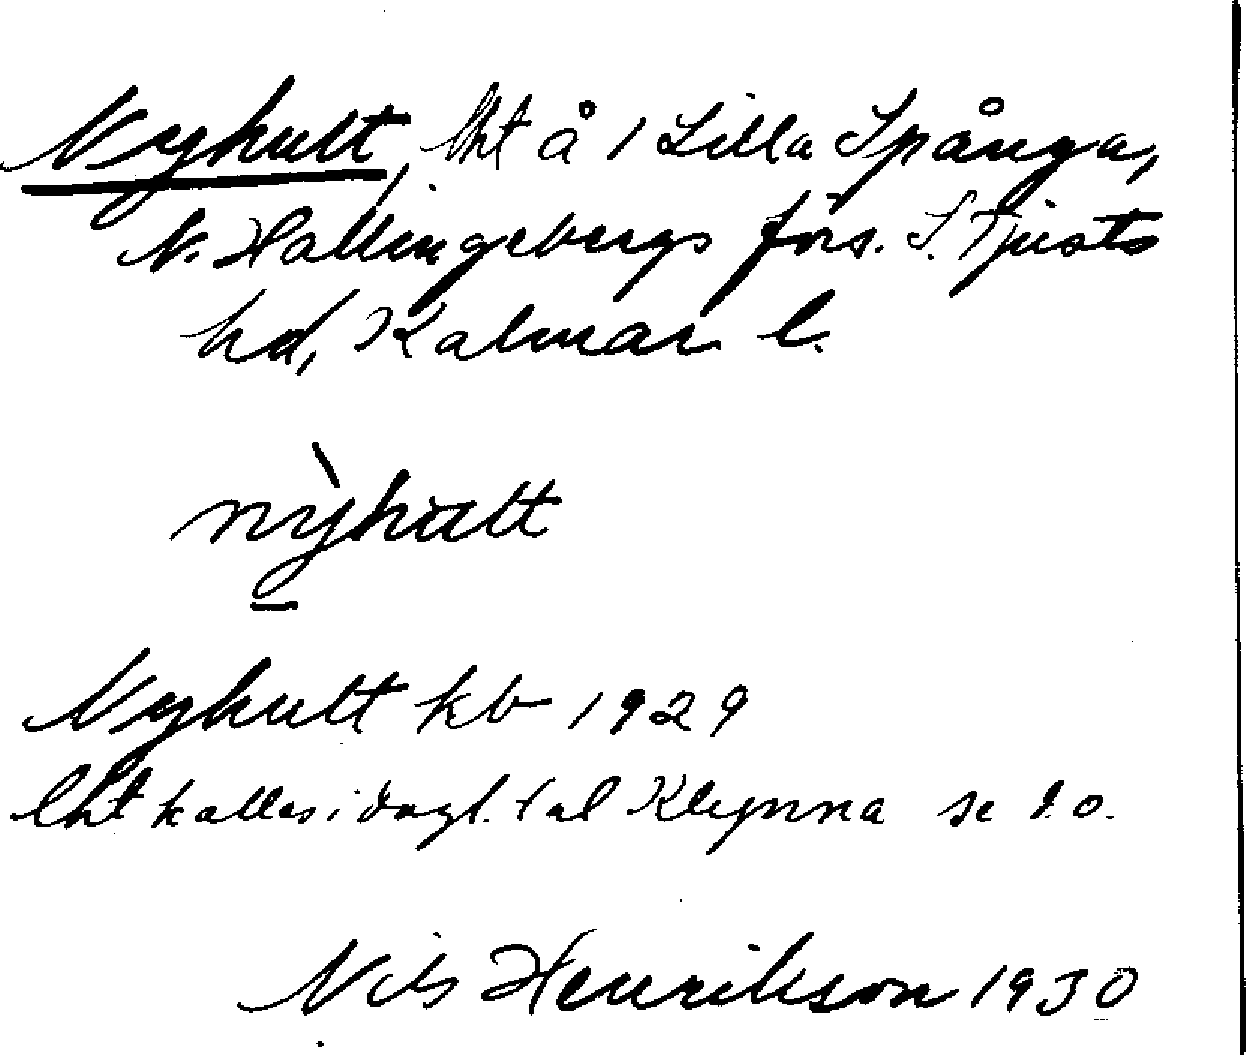 Nyhult, lht å 1 Lilla Spånga,
V. Hallingebergs förs. S. Tjusts
hd, Kalmar l.
nỳhult
Nyhult kb 1929
Lht kallas i dagl. tal Klynna se d.o.
Nils Henrikson 1930